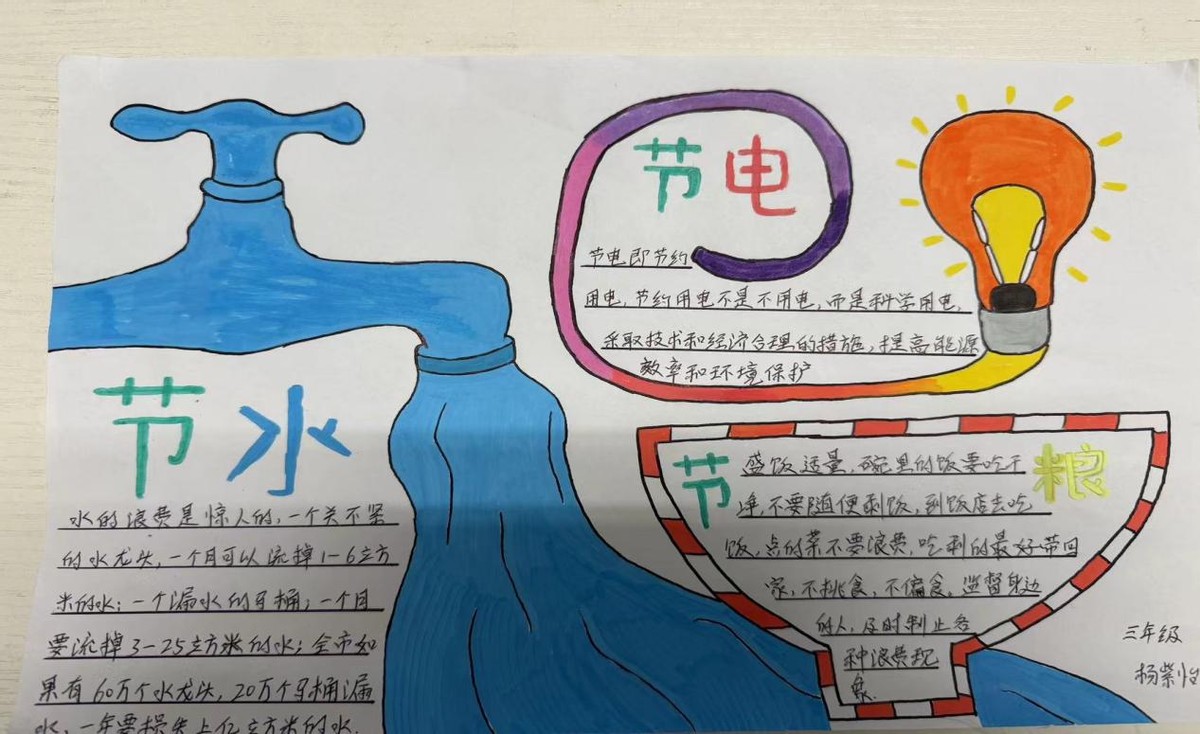 节水
水的浪费是惊人的，一个关不紧
的水龙头，一个月可以流掉1-6立方
米的水；一个漏水的马桶，一个月
要流掉3-25立方米的水；全市如
果有60万个水龙头，20万个马桶漏
水，一年要损失上亿立方米的水.
节电
节电即节约
用电，节约用电不是不用电，而是科学用电，
采取技术和经济合理的措施，提高能源
效率和环境保护
节粮
盛饭适量，碗里的饭要吃干
净，不要随便剩饭，到饭店去吃
饭，点的菜不要浪费，吃剩的最好带回
家，不挑食，不偏食。监督身边
的人，及时制止各
种浪费现
象.
三年级
杨紫怡